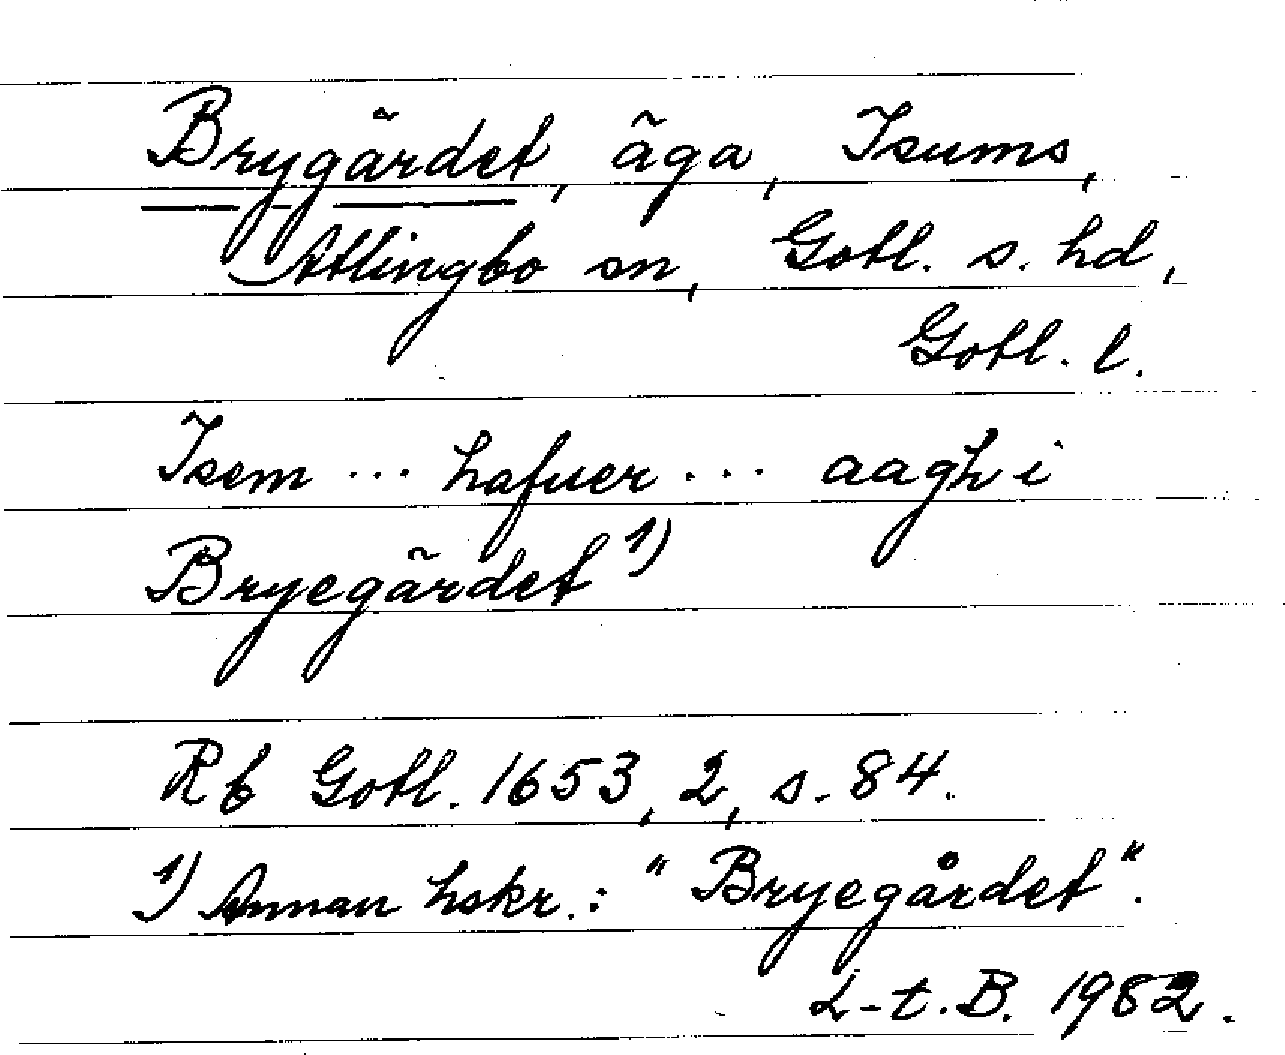 Brygärdet, äga, Isums,
Atlingbo sn, Gotl. s. hd,
Gotl. l.
Isem ... hafuer ... aagh i
Bryegärdet 1)
Rb Gotl. 1653, 2, s. 84.
1) Annan hskr.: "Bryegårdet".
L-t. B. 1982.